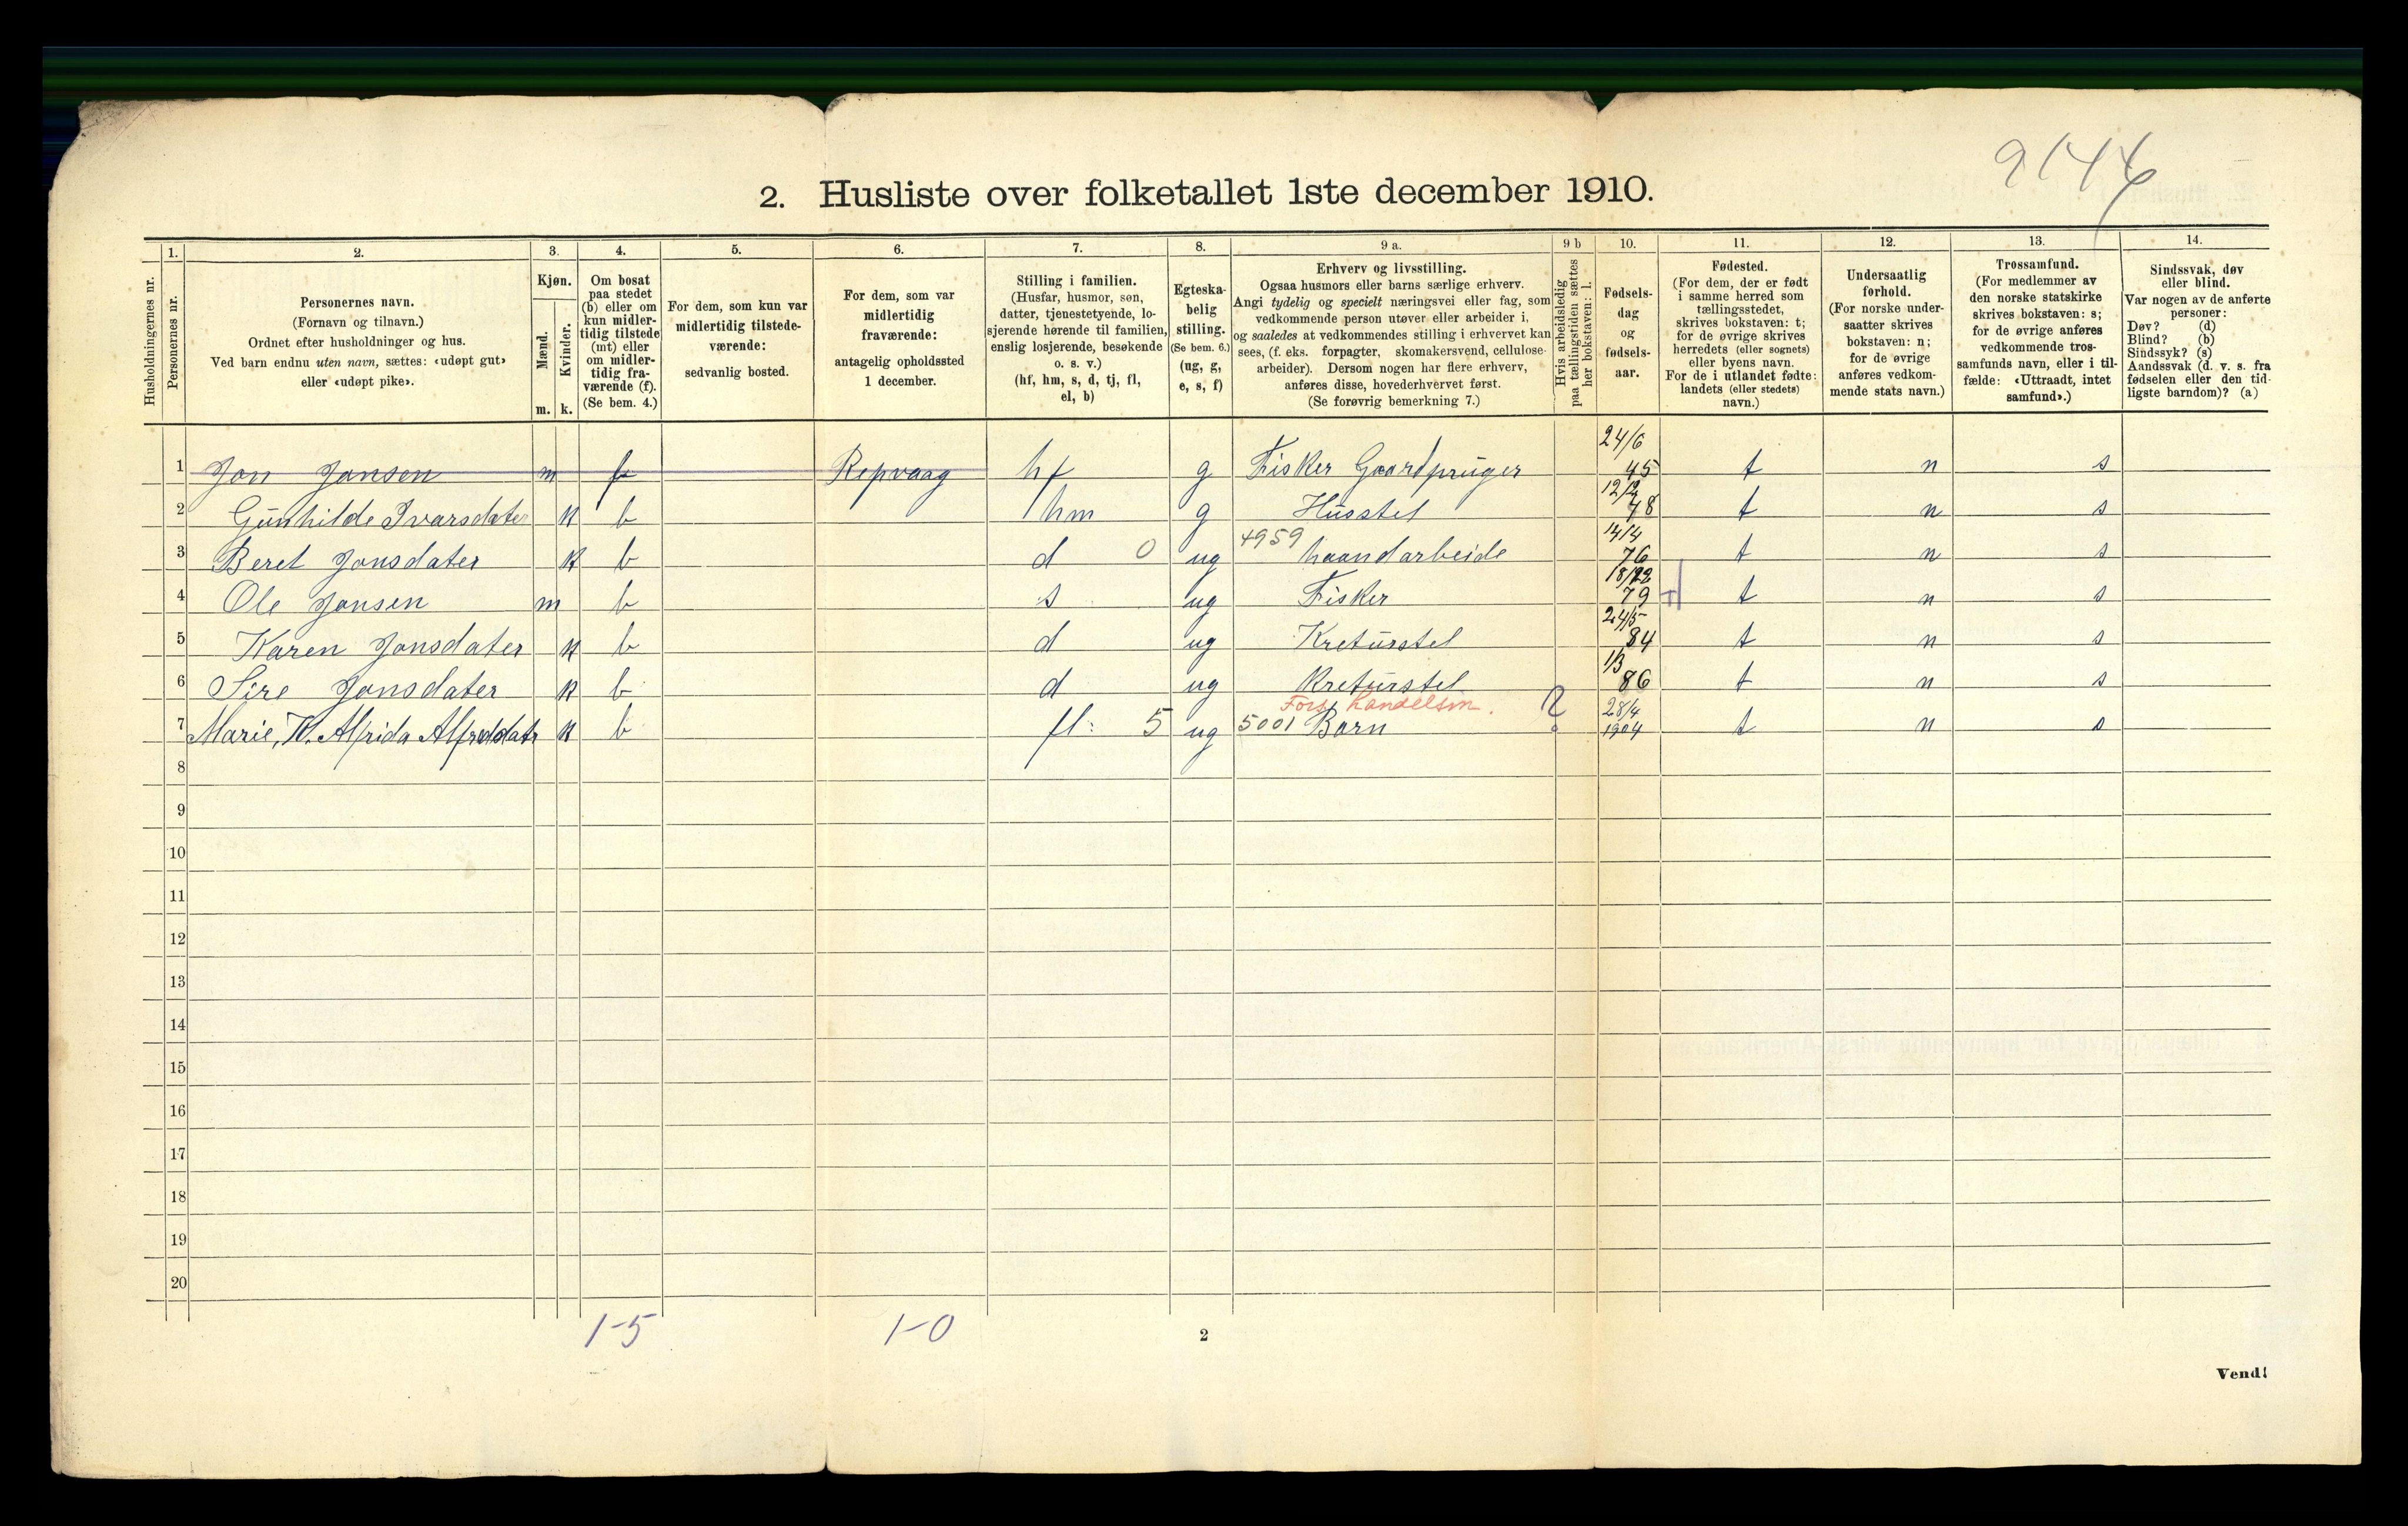 9144
2. Husliste over folketallet 1ste december 1910.
1. 2. 3. 4. 5. 6. 7. 8. 9 a. 9 b 10. 11. 12. 13. 14.
Husholdningernes nr.
Personernes nr.
Personernes navn.
(Fornavn og tilnavn.)
Ordnet efter husholdninger og hus.
Ved barn endnu uten navn, sættes: «udøpt gut»
eller «udøpt pike».
Kjøn.
Mænd.
Kvinder.
m. k.
Om bosat
paa stedet
(b) eller om
kun midler-
tidig tilstede
(mt) eller
om midler-
tidig fra-
værende (f).
(Se bem. 4.)
For dem, som kun var
midlertidig tilstede-
værende:
sedvanlig bosted.
For dem, som var
midlertidig
fraværende:
antagelig opholdssted
1 december.
Stilling i familien.
(Husfar, husmor, søn,
datter, tjenestetyende, lo-
sjerende hørende til familien,
enslig losjerende, besøkende
o. s. v.)
(hf, hm, s, d, tj, fl,
el, b)
Egteska-
belig
stilling.
(Se bem. 6.)
(ug, g,
e, s, f)
Erhverv og livsstilling.
Ogsaa husmors eller barns særlige erhverv.
Angi tydelig og specielt næringsvei eller fag, som
vedkommende person utøver eller arbeider i,
og saaledes at vedkommendes stilling i erhvervet kan
sees, (f. eks. forpagter, skomakersvend, cellulose-
arbeider). Dersom nogen har flere erhverv,
anføres disse, hovederhvervet først.
(Se forøvrig bemerkning 7.)
Hvis arbeidsledig
paa tællingstiden sættes
her bokstaven: l.
Fødsels-
dag
og
fødsels-
aar.
Fødested.
(For dem, der er født
i samme herred som
tællingsstedet,
skrives bokstaven: t;
for de øvrige skrives
herredets (eller sognets)
eller byens navn.
For de i utlandet fødte:
landets (eller stedets)
navn.)
Undersaatlig
forhold.
(For norske under-
saatter skrives
bokstaven: n;
for de øvrige
anføres vedkom-
mende stats navn.)
Trossamfund.
(For medlemmer av
den norske statskirke
skrives bokstaven: s;
for de øvrige anføres
vedkommende tros-
samfunds navn, eller i til-
fælde: «Uttraadt, intet
samfund».)
Sindssvak, døv
eller blind.
Var nogen av de anførte
personer:
Døv? (d)
Blind? (b)
Sindssyk? (s)
Aandssvak (d. v. s. fra
fødselen eller den tid-
ligste barndom)? (a)
1 Jon Jonsen m f Repvaag hf g Fisker Gaardpruger 24/6 45 t n s
2 Gunhilde Ivarsdater k b hm g Husstel 12/2 48 t n s
3 Beret Jonsdater k b d 0 ug 4959 haandarbeide 14/4 76 t n s
4 Ole Jonsen m b s ug Fisker 18/12 79 t n s
5 Karen Jonsdater k b d ug Kreturstel 24/5 84 t n s
6 Sire Jonsdater k b d ug Kreturstel 1/3 86 t n s
7 Marie, K. Alfrida Alfredsdatr k b fl: 5 ug 5001 Barn Fors. handelsm. ? 28/4 1904 t n s
8
9
10
11
12
13
14
15
16
17
18
19
20
1-5 1-0
2
Vend!